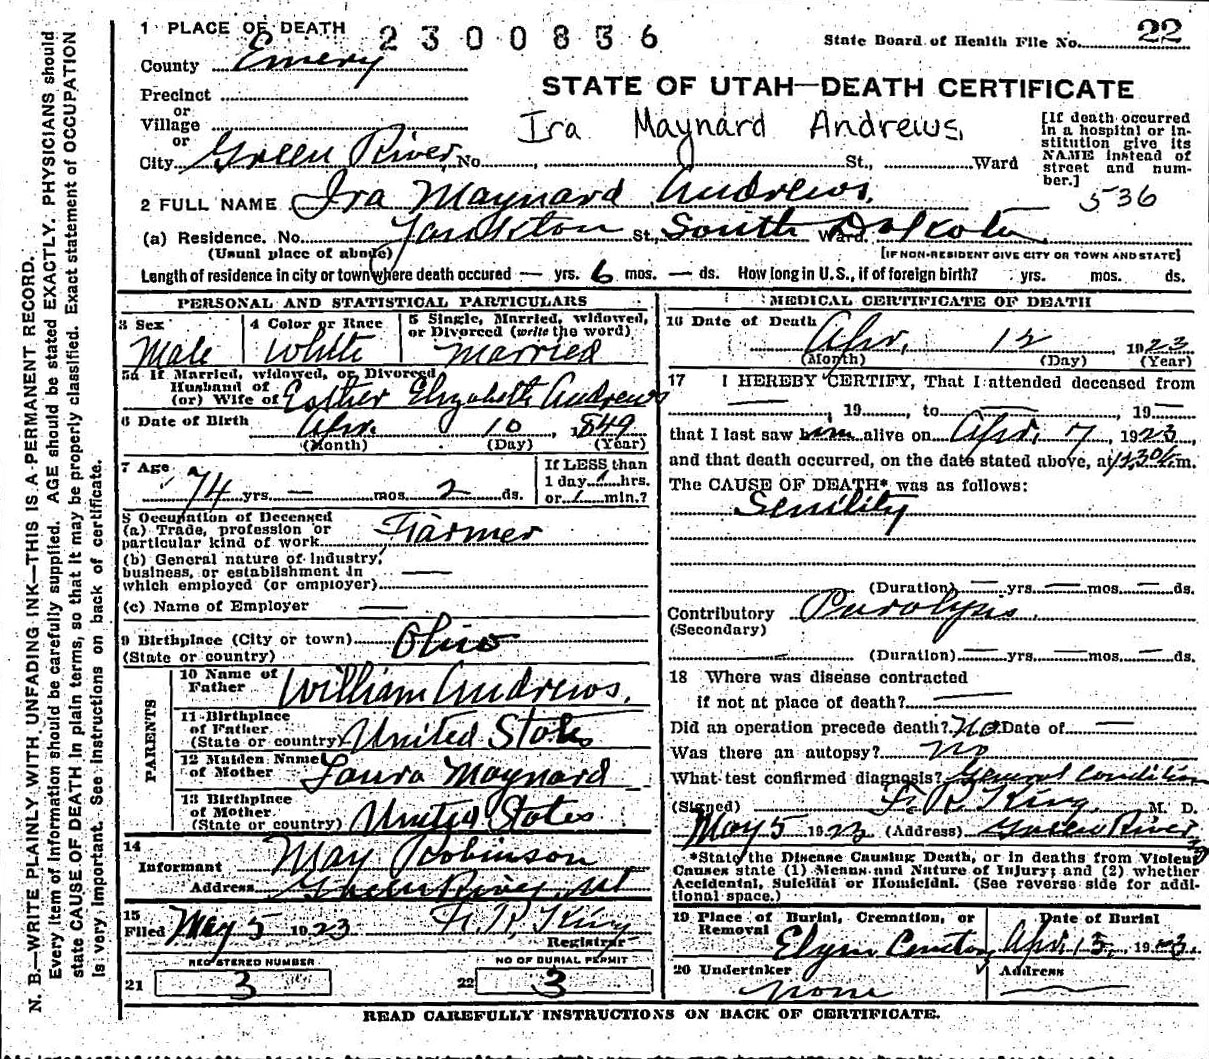 1 PLACE OF DEATH 2300836
State Board of Health File No. 22
County Emery
STATE OF UTAH—DEATH CERTIFICATE
Precinct
or
Village
or
City Green River, No. , St., Ward
Ira Maynard Andrews,
[If death occurred in a hospital or institution give its NAME instead of street and number.]
536
2 FULL NAME Ira Maynard Andrews.
(a) Residence. No. Yankton St., South Ward. Dakota
(Usual place of above) [IF NON-RESIDENT GIVE CITY OR TOWN AND STATE]
Length of residence in city or town where death occured — yrs. 6 mos. — ds. How long in U.S., if of foreign birth? yrs. mos. ds.
PERSONAL AND STATISTICAL PARTICULARS
3 Sex Male
4 Color or Race White
5 Single, Married, widowed, or Divorced (write the word) Married
5a If Married, widowed, or Divorced
Husband of
(or) Wife of Esther Elizabeth Andrews
6 Date of Birth Apr. 10, 1849
(Month) (Day) (Year)
7 Age 74 yrs. — mos. 2 ds.
If LESS than
1 day hrs.
or min.?
8 Occupation of Deceased
(a) Trade, profession or
particular kind of work Farmer
(b) General nature of industry,
business, or establishment in
which employed (or employer) —
(c) Name of Employer —
9 Birthplace (City or town) Ohio
(State or country)
PARENTS
10 Name of Father William Andrews.
11 Birthplace of Father
(State or country) United States
12 Maiden Name of Mother Laura Maynard
13 Birthplace of Mother
(State or country) United States
14
Informant May Robinson
Address Green River, Ut
15
Filed May 5 1923 F. R. King
Registrar
REGISTERED NUMBER
21 3
NO OF BURIAL PERMIT
22 3
MEDICAL CERTIFICATE OF DEATH
16 Date of Death Apr. 12, 1923
(Month) (Day) (Year)
17 I HEREBY CERTIFY, That I attended deceased from
—, 19, to —, 19—
that I last saw him alive on Apr. 7, 1923,
and that death occurred, on the date stated above, at m.
The CAUSE OF DEATH* was as follows:
Senility
(Duration) — yrs. — mos. — ds.
Contributory Paralysis.
(Secondary)
(Duration) — yrs. — mos. — ds.
18 Where was disease contracted
if not at place of death? —
Did an operation precede death? No Date of —
Was there an autopsy? No
What test confirmed diagnosis? General Condition
(Signed) F. R. King. M. D.
May 5 1923 (Address) Green River,
*State the Disease Causing Death, or in deaths from Violent
Causes state (1) Means and Nature of Injury; and (2) whether
Accidental, Suicidal or Homicidal. (See reverse side for additional space.)
19 Place of Burial, Cremation, or Removal Elgin Cemetery
Date of Burial Apr. 13, 1923.
20 Undertaker none
Address
READ CAREFULLY INSTRUCTIONS ON BACK OF CERTIFICATE.
N. B.—WRITE PLAINLY WITH UNFADING INK—THIS IS A PERMANENT RECORD.
Every item of Information should be carefully supplied. AGE should be stated EXACTLY. PHYSICIANS should
state CAUSE OF DEATH in plain terms, so that it may be properly classified. Exact statement of OCCUPATION
is very important. See instructions on back of certificate.